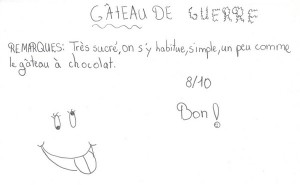 GÂTEAU DE GUERRE
REMARQUES: Très sucré, on s'y habitue, simple, un peu comme
le gâteau à chocolat.
8/10
Bon!